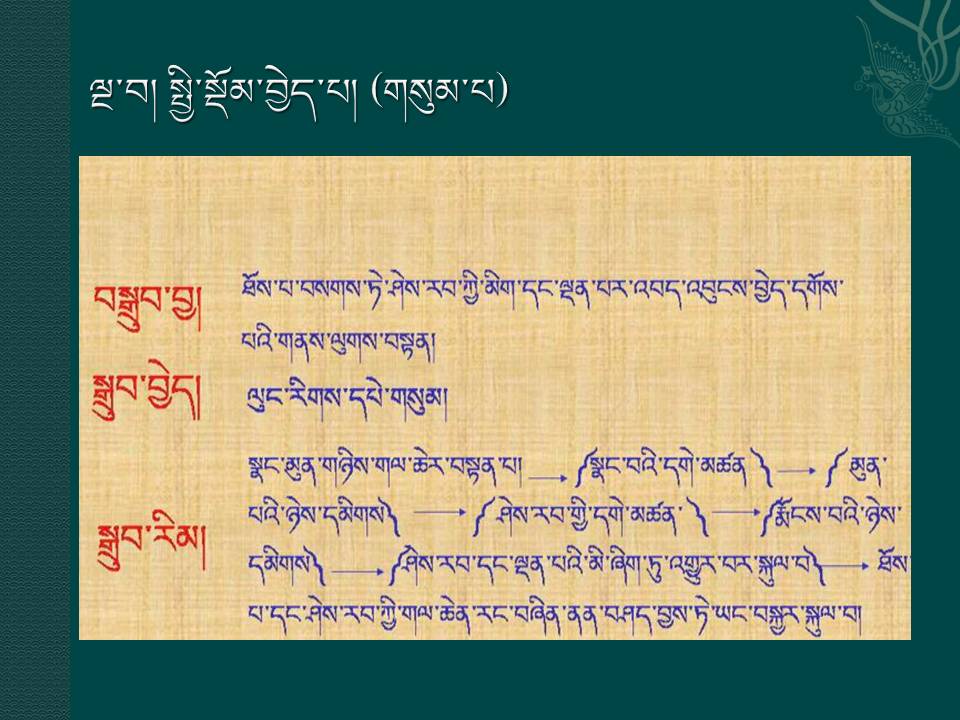 ལྔ་བ། སྤྱི་སྡོམ་བྱེད་པ། (གསུམ་པ)
བསྒྲུབ་བྱ། ཐོས་པ་བསགས་ཏེ་ཤེས་རབ་ཀྱི་མིག་དང་ལྡན་པར་འབད་འབུངས་བྱེད་དགོས་
པའི་གནས་ལུགས་བསྟན།
སྒྲུབ་བྱེད། ལུང་རིགས་དཔེ་གསུམ།
སྣང་མུན་གཉིས་གལ་ཆེར་བསྟན་པ། → ༼སྣང་བའི་དགེ་མཚན༽ → ༼མུན་
སྒྲུབ་རིམ། པའི་ཉེས་དམིགས༽ → ༼ཤེས་རབ་ཀྱི་དགེ་མཚན་༽ → ༼རྨོངས་བའི་ཉེས་
དམིགས༽ → ༼ཤེས་རབ་དང་ལྡན་པའི་མི་ཞིག་ཏུ་འགྱུར་བར་སྐུལ་བ༽ → ཐོས་
པ་དང་ཤེས་རབ་ཀྱི་གལ་ཆེན་རང་བཞིན་ནན་བཤད་བྱས་ཏེ་ཡང་བསྐྱར་སྐུལ་བ།